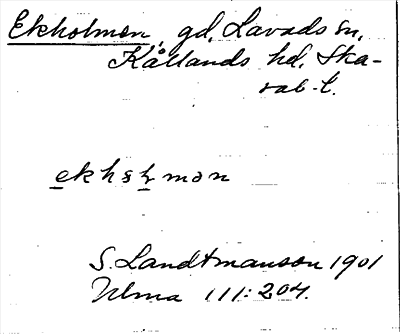 Ekholmen, gd, Lavads sn,
Kållands hd, Ska-
rab. l.
S. Landtmanson 1901
Ulma 111:204.